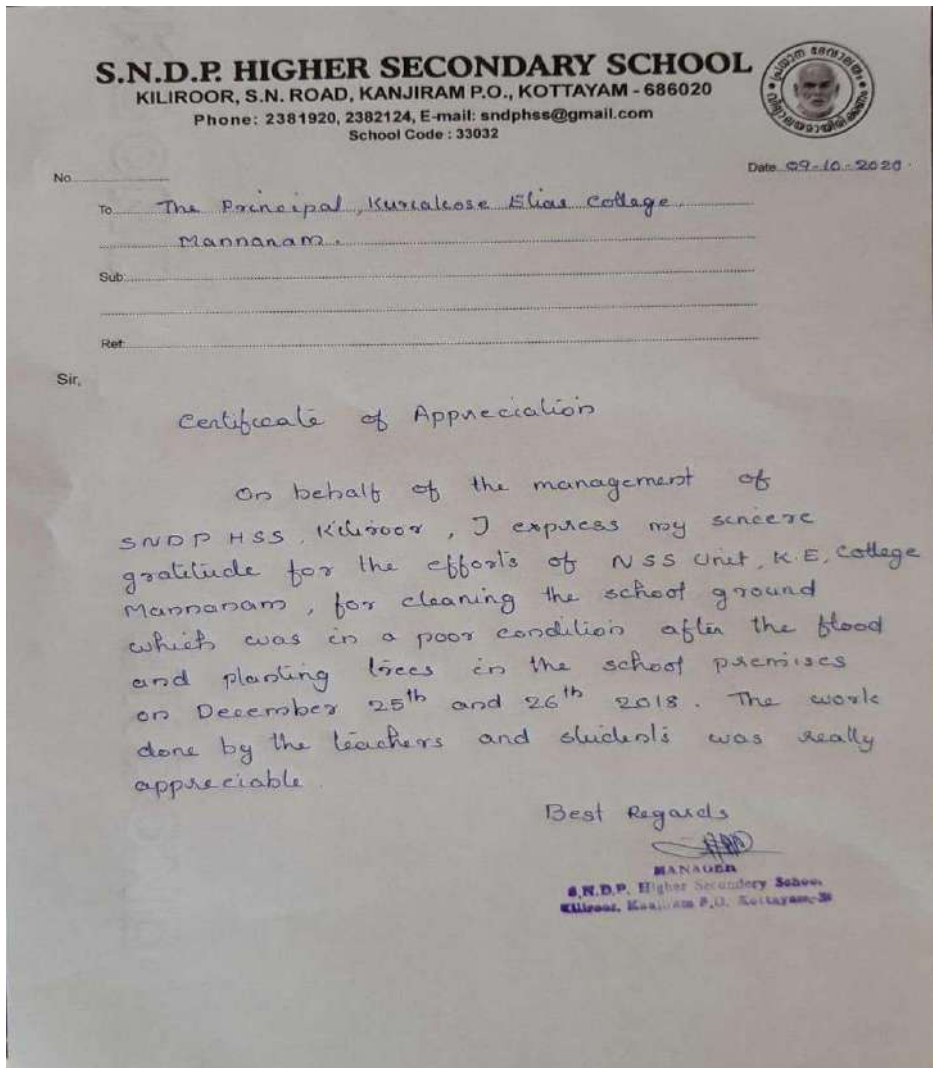 S.N.D.P. HIGHER SECONDARY SCHOOL
KILIROOR, S.N. ROAD, KANJIRAM P.O., KOTTAYAM - 686020
Phone: 2381920, 2382124, E-mail: sndphss@gmail.com
School Code : 33032
No
Date 09-10-2020.
To The Principal, Kuriakose Elias College,
Mannanam.
Sub:
Ref:
Sir,
Certificate of Appreciation
On behalf of the management of
SNDP HSS, Kiliroor, I express my sincere
gratitude for the efforts of NSS Unit, K.E, College
Mannanam, for cleaning the school ground
which was in a poor condition after the flood
and planting trees in the school premises
on December 25th and 26th 2018. The work
done by the teachers and students was really
appreciable.
Best Regards
MANAGER
S.N.D.P. Higher Secondary School
Kiliroor, Kanjiram P.O. Kottayam-